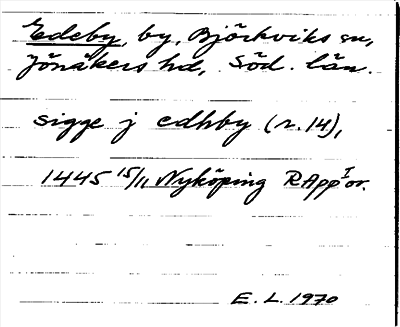 Edeby, by, Björkviks sn,
Jönåkers hd, Söd. län.
sigge j edhby (r. 14),
1445 15/11 Nyköping RApp I or.
E. L. 1970